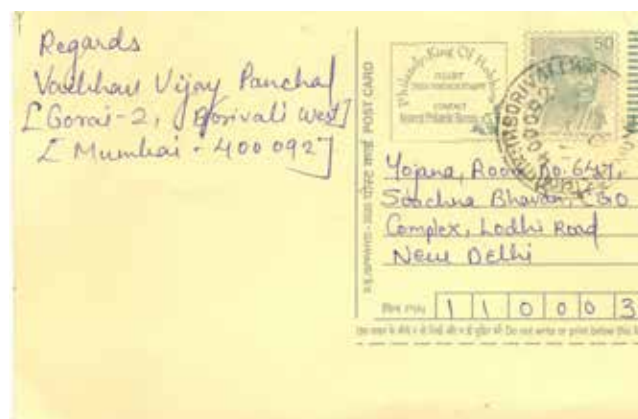 Regards
Vaibhav Vijay Panchal
[Gorai-2, Borivali West]
[Mumbai - 400 092]
POST CARD
Philately-King Of Hobbies
COLLECT
CONTACT
National Philatelic Bureau
50
Yojana, Room No. 647,
Soochna Bhavan, CGO
Complex, Lodhi Road
New Delhi
पिन PIN 1 1 0 0 0 3
Do not write or print below this